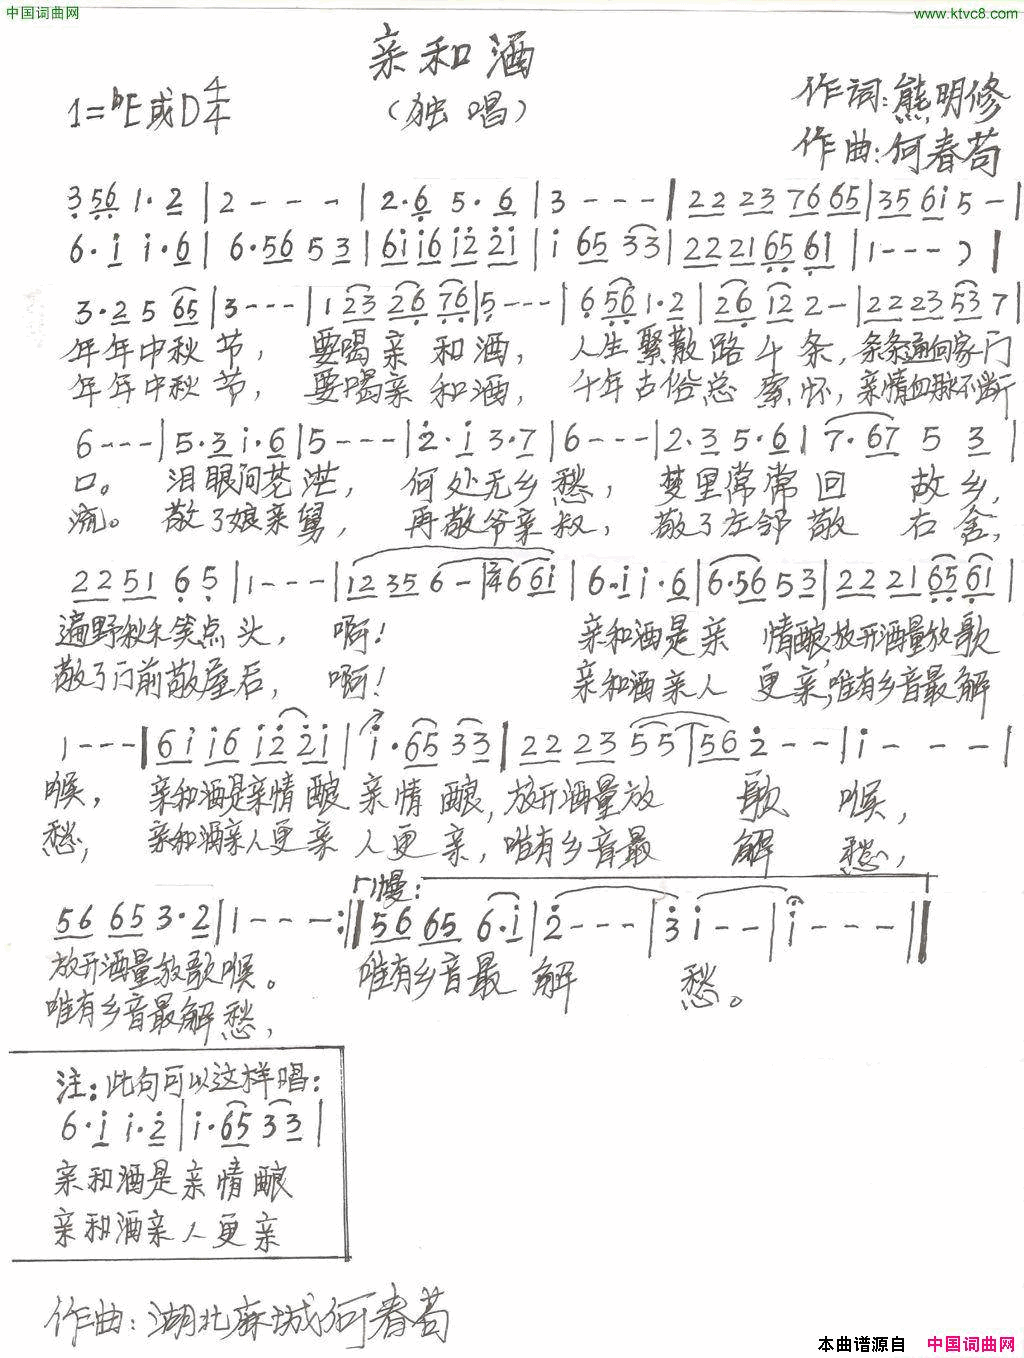 中国词曲网
www.ktvc8.com
亲和酒
(独唱)
1=♭E或D 4/4
作词:熊明修
作曲:何春苟
3 56 1·2 | 2 - - - | 2·6 5·6 | 3 - - - | 22 23 76 65 | 35 6i 5 - |
6·i i·6 | 6·56 5 3 | 6i i6 i2 2i | i 65 33 | 22 21 65 61 | 1 - - - ) |
3·2 5 65 | 3 - - - | 1 23 26 76 | 5 - - - | 6 56 1·2 | 26 12 2 - | 22 23 53 7 |
年年中秋节, 要喝亲和酒, 人生聚散路千条, 条条通向家门
年年中秋节, 要喝亲和酒, 千年古俗总萦怀, 亲情血脉不断
6 - - - | 5·3 i·6 | 5 - - - | 2·i 3·7 | 6 - - - | 2·3 5·6 | 7·67 5 3 |
口。 泪眼问苍茫, 何处无乡愁, 梦里常常回 故乡,
流。 敬了娘亲舅, 再敬爷亲叔, 敬了左邻敬 右舍,
22 51 6 5 | 1 - - - | 12 35 6 - | 3/4 6 6i | 6·i i·6 | 6·56 53 | 22 21 65 61 |
遍野秋禾笑点头, 啊! 亲和酒是亲 情酿,放开酒量放歌
敬了门前敬屋后, 啊! 亲和酒亲人 更亲,唯有乡音最解
1 - - - | 6i i6 i2 2i | i·65 33 | 22 23 55 | 56 2 - - | i - - - |
喉, 亲和酒是亲情酿 亲情酿, 放开酒量放 歌 喉,
愁, 亲和酒亲人更亲 人更亲, 唯有乡音最 解 愁,
慢:
56 65 3·2 | 1 - - - :‖ 56 65 6·i | 2 - - - | 3 i - - | i - - - ‖
放开酒量放歌喉。 唯有乡音最 解 愁。
唯有乡音最解愁,
注:此句可以这样唱:
6·i i·2 | i·65 33 |
亲和酒是亲情酿
亲和酒亲人更亲
作曲:湖北麻城何春苟
本曲谱源自 中国词曲网